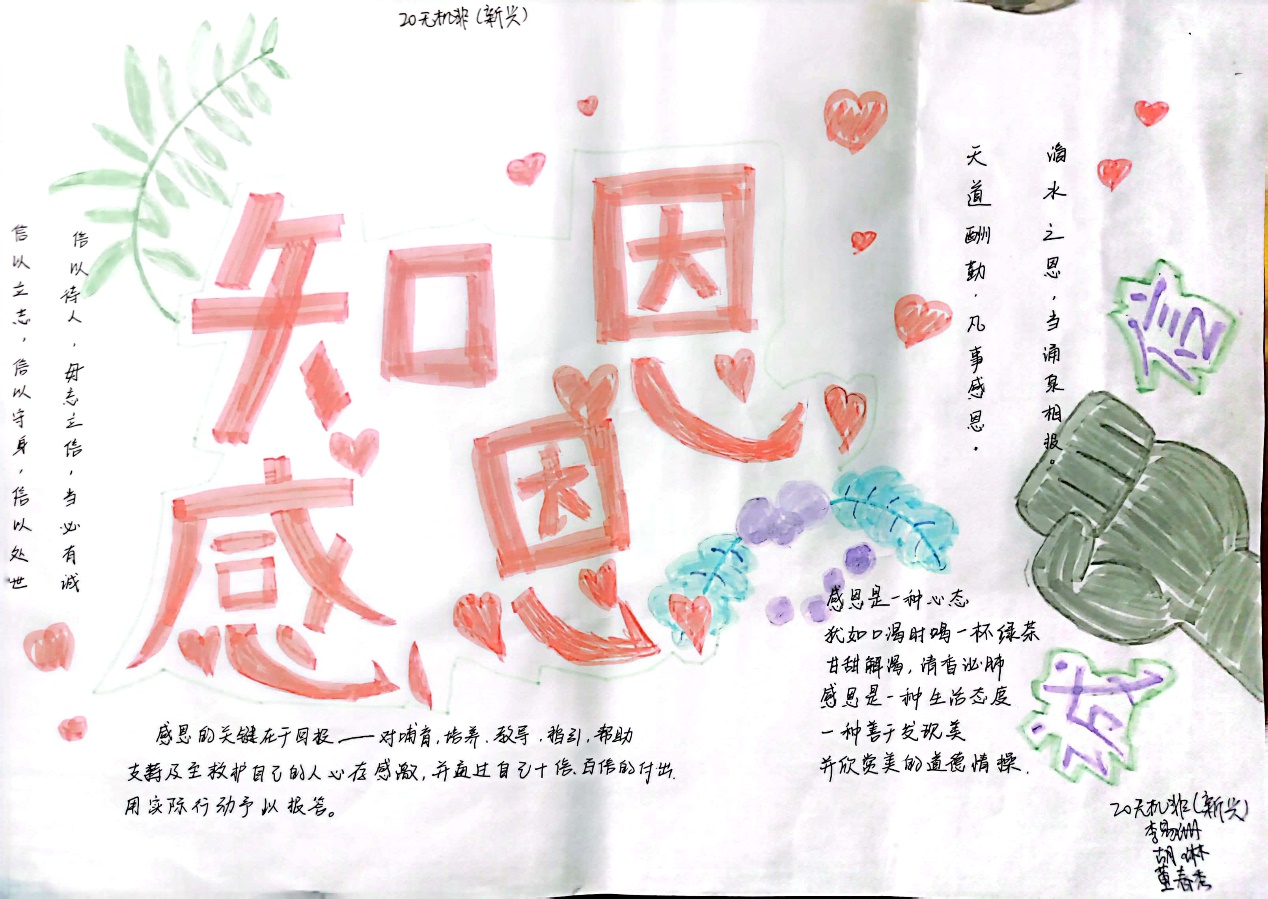 20无机非(新兴)
知恩
感恩
信以待人，毋志立信，当必有诚
信以立志，信以守身，信以处世
滴水之恩，当涌泉相报。
天道酬勤，凡事感恩。
感恩是一种心态
犹如口渴时喝一杯绿茶
甘甜解渴，清香沁肺
感恩是一种生活态度
一种善于发现美
并欣赏美的道德情操.
感恩的关键在于回报——对哺育,培养、教导、指引,帮助
支持及至救护自己的人心存感激,并通过自己十倍、百倍的付出.
用实际行动予以报答。
诚
信
20无机非(新兴)
胡琳
董春秀